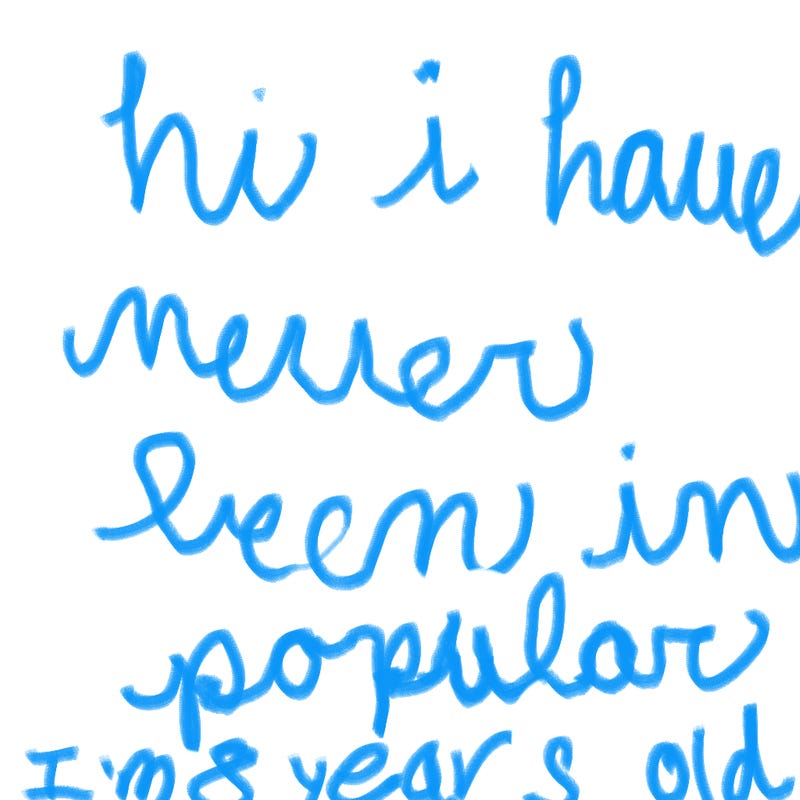 hi i have
never
been in
popular
I'm 8 years old